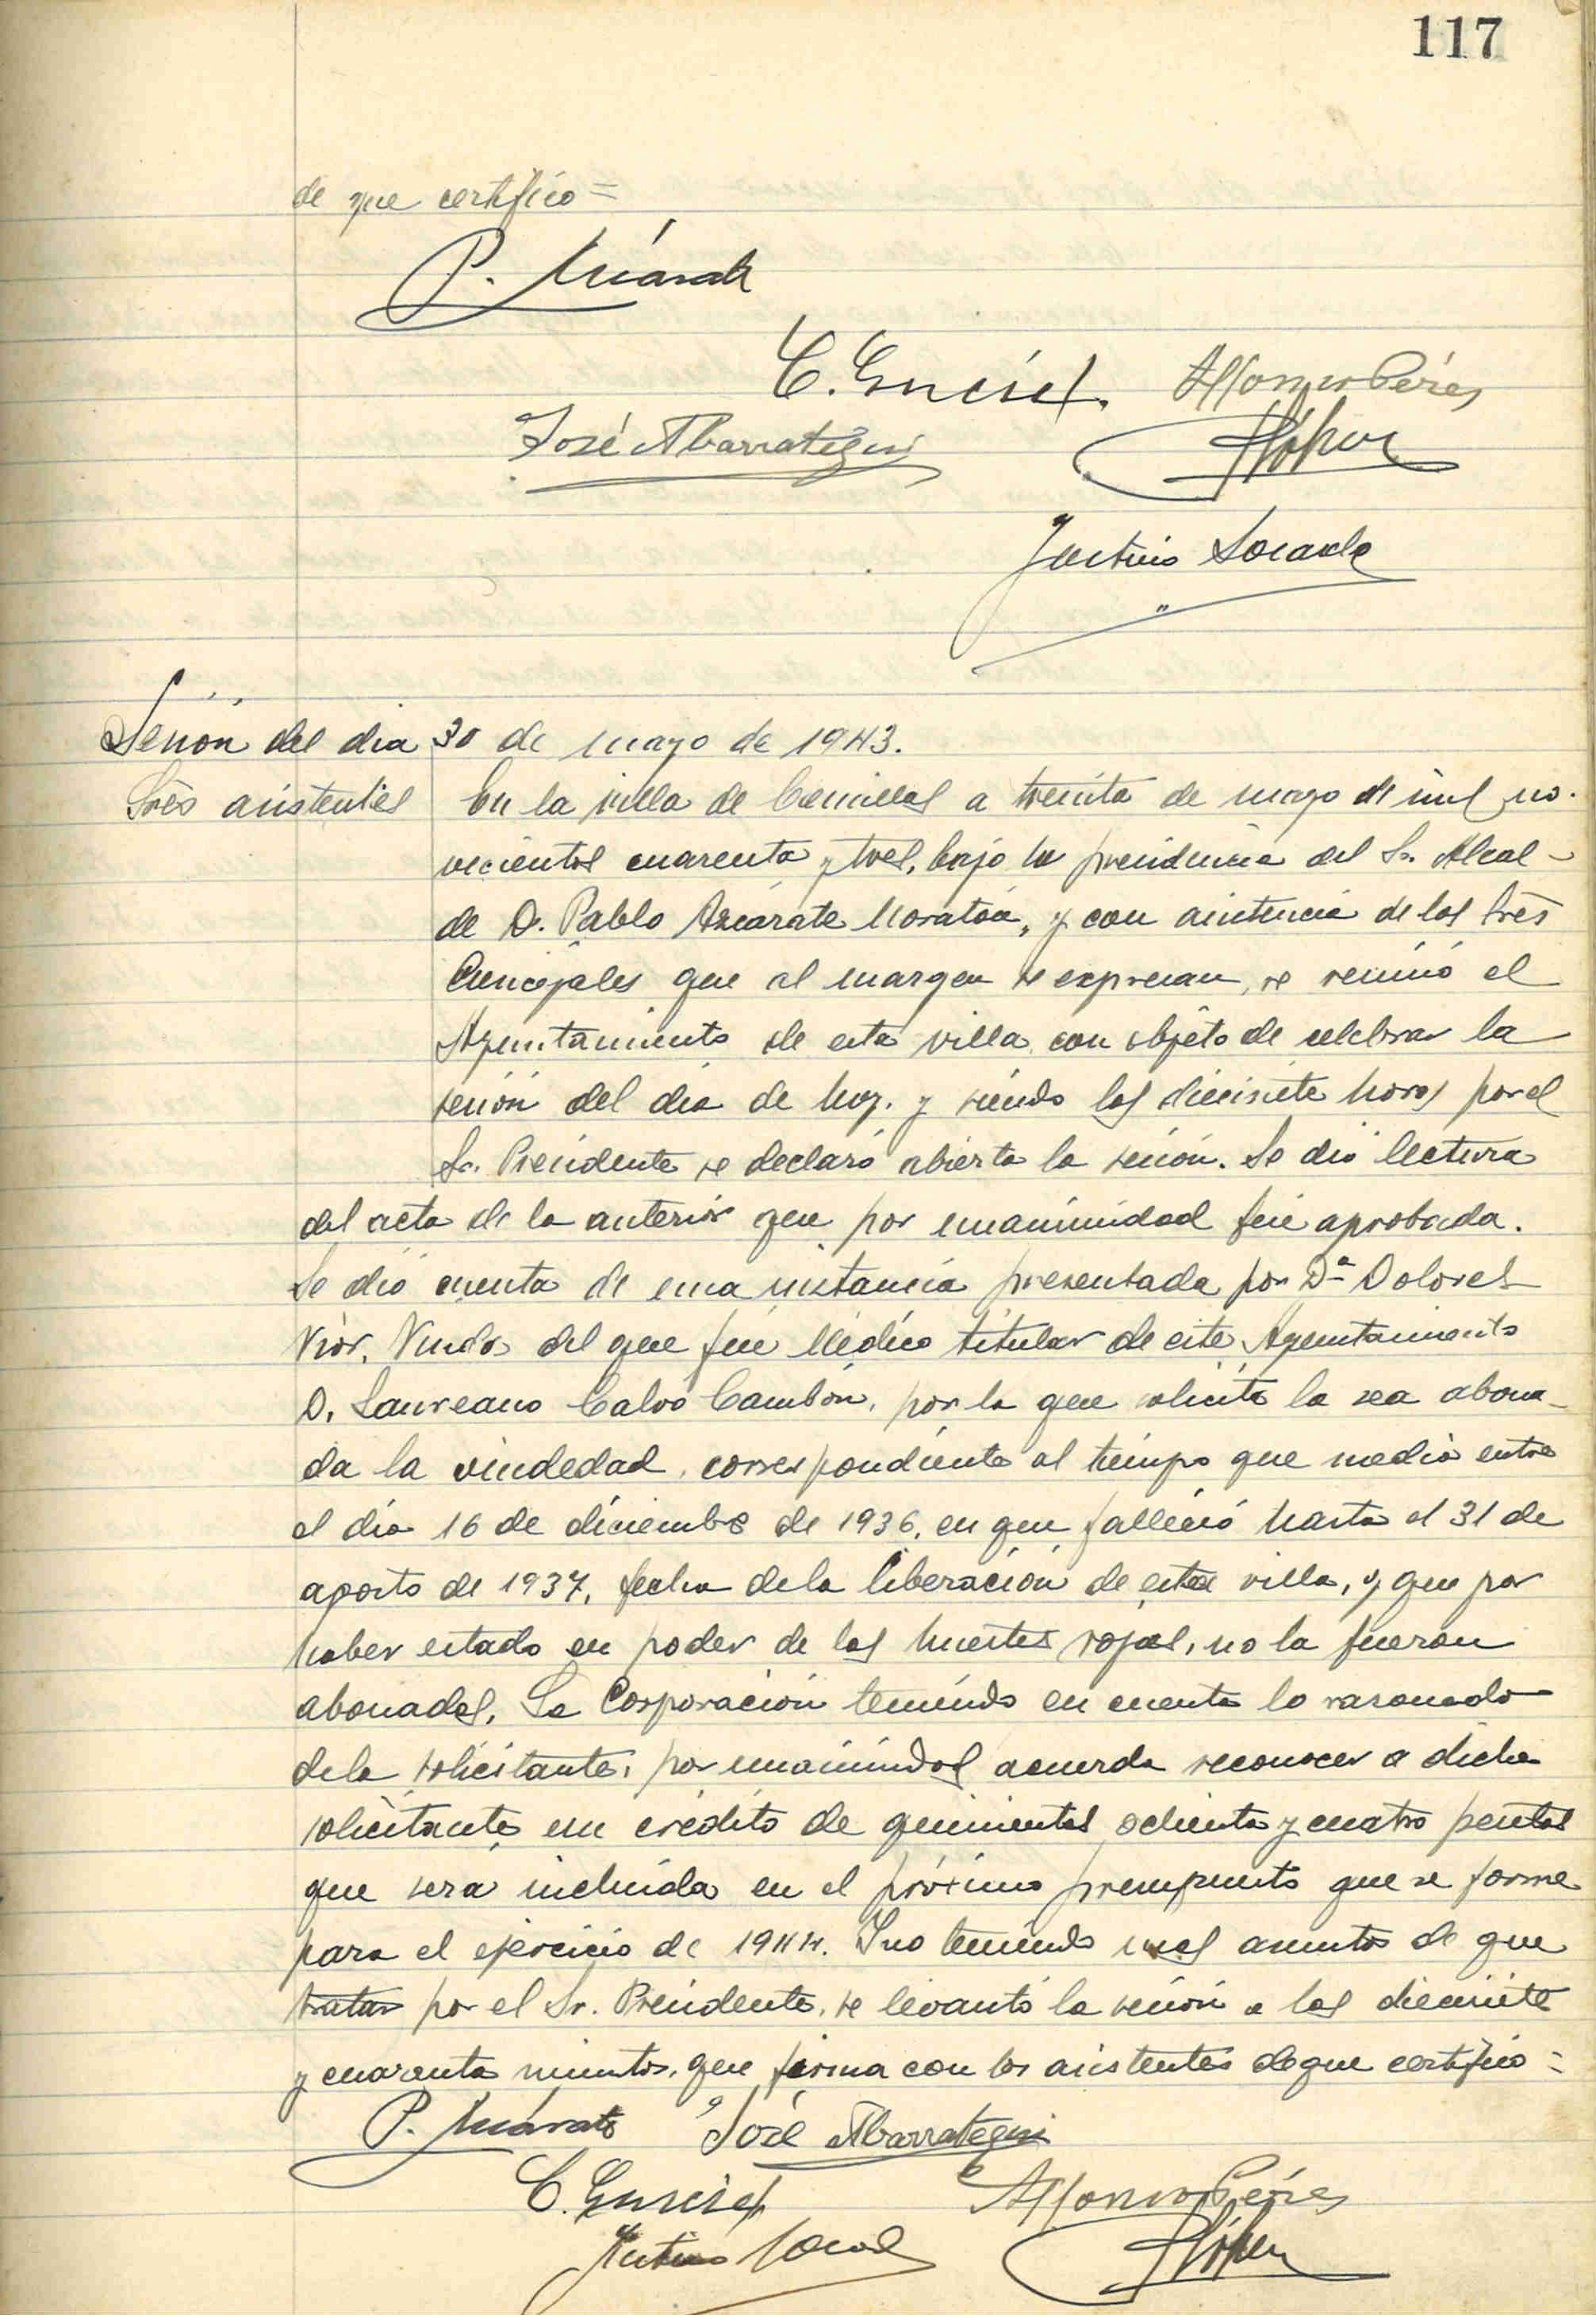 117
de que certifico =
P. Azcárate
C. Alfonso Pérez
José Abarrategui López
Justino
Sesión del dia 30 de mayo de 1943.
Sres asistentes En la villa de Comillas a treinta de mayo de mil no-
vecientos cuarenta y tres, bajo la presidencia del Sr. Alcal-
de D. Pablo Azcárate Moratón, y con asistencia de los Sres
Concejales que al margen se expresan, se reunió el
Ayuntamiento de esta villa con objeto de celebrar la
sesión del dia de hoy. y siendo las diecisiete horas por el
Sr. Presidente se declaró abierta la sesión. Se dió lectura
del acta de la anterior que por unanimidad fué aprobada.
Se dió cuenta de una instancia presentada por Dª Dolores
Vior, Viuda del que fué Médico titular de este Ayuntamiento
D. Laureano Calvo Cambón, por la que solicita la sea abona-
da la viudedad, correspondiente al tiempo que media entre
el dia 16 de diciembre de 1936, en que falleció hasta el 31 de
agosto de 1937, fecha de la liberación de esta villa, y que por
haber estado en poder de las huestes rojas, no la fueron
abonadas. La Corporación teniendo en cuenta lo razonado
de la solicitante, por unanimidad acuerda reconocer a dicha
solicitante un crédito de quinientas ochenta y cuatro pesetas
que será incluida en el próximo presupuesto que se forme
para el ejercicio de 1944. Y no teniendo mas asuntos de que
tratar por el Sr. Presidente, se levantó la sesión a las diecisiete
y cuarenta minutos, que firma con los asistentes de que certifico =
P. Azcárate José Abarrategui
C. Alfonso Pérez
Justino López